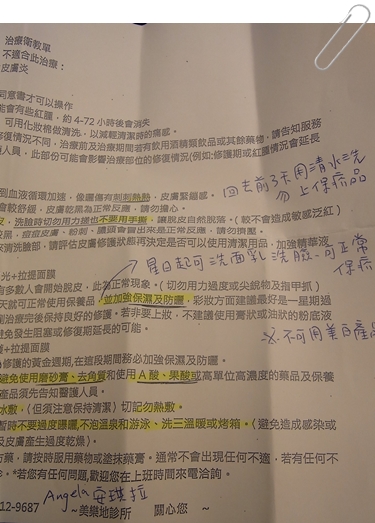 治療衛教單
不適合此治療：
皮膚炎
同意書才可以操作
能會有些紅腫，約 4-72 小時後會消失
可用化妝棉做清洗，以減輕清潔時的痛感。
修復情況不同，治療前及治療期間若有飲用酒精類飲品或其餘藥物，請告知服務
人員，此部份可能會影響治療部位的修復情況(例如:修護期或紅腫情況會延長
回去前3天用清水洗
勿上保養品
到血液循環加速，像曬傷有刺刺熱熱、皮膚緊繃感。
會較舒緩，皮膚乾黑為正常反應，請勿擔心。
洗臉時切勿用力搓也不要用手摳，讓脫皮自然脫落。(較不會造成敏感泛紅)
痘痘皮膚、粉刺、請勿
來清洗臉部，請評估皮膚修護狀態再決定是否可以使用清潔用品，加強精華液
星日起可洗面乳洗臉、可正常
保養
光+拉提面膜
有多數人會開始脫皮，此為正常現象。(切勿用力摸或尖銳物及指甲抓)
天就可正常使用保養品，並加強保濕及防曬，彩妝方面建議最好是一星期過
刷治療完後保持良好的修護。若非要上妝，不建議使用膏狀或油狀的粉底液
避免發生阻塞或修復期延長的可能。
※不可用美白產品
+拉提面膜
為修護的黃金週期，在這段期間務必加強保濕及防曬。
避免使用磨砂膏、去角質和使用 A 酸、果酸或高單位高濃度的藥品及保養
產品須先告知醫護人員。
冰敷，(但須注意保持清潔) 切記勿熱敷。
暫時不要過度曝曬，不泡溫泉和游泳、洗三溫暖或烤箱。(避免造成感染或
及皮膚產生過度乾燥)。
藥，請按時服用藥物或塗抹藥膏。通常不會出現任何不適，若有任何不
*若您有任何問題,歡迎您在上班時間來電洽詢。
12-9687 Angela 安琪拉
~美樂地診所 關心您 ~